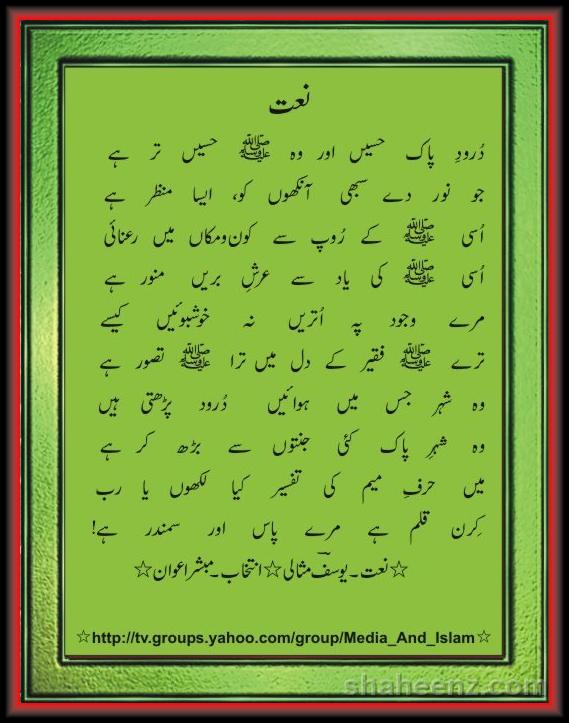 نعت
دُرودِ پاک حسیں اور وہ ﷺ حسیں تر ہے
جو نور دے سبھی آنکھوں کو، ایسا منظر ہے
اُسی ﷺ کے رُوپ سے کون ومکاں میں رعنائی
اُسی ﷺ کی یاد سے عرشِ بریں منور ہے
مرے وجود پہ اُتریں نہ خوشبوئیں کیسے
ترے ﷺ فقیر کے دل میں ترا ﷺ تصور ہے
وہ شہر جس میں ہوائیں دُرود پڑھتی ہیں
وہ شہرِ پاک کئی جنتوں سے بڑھ کر ہے
میں حرفِ میم کی تفسیر کیا لکھوں یا رب
کِرن قلم ہے مرے پاس اور سمندر ہے!
☆نعت۔یوسفؔ مثالی☆انتخاب۔مبشراعوان☆
☆http://tv.groups.yahoo.com/group/Media_And_Islam☆
shaheenz.com